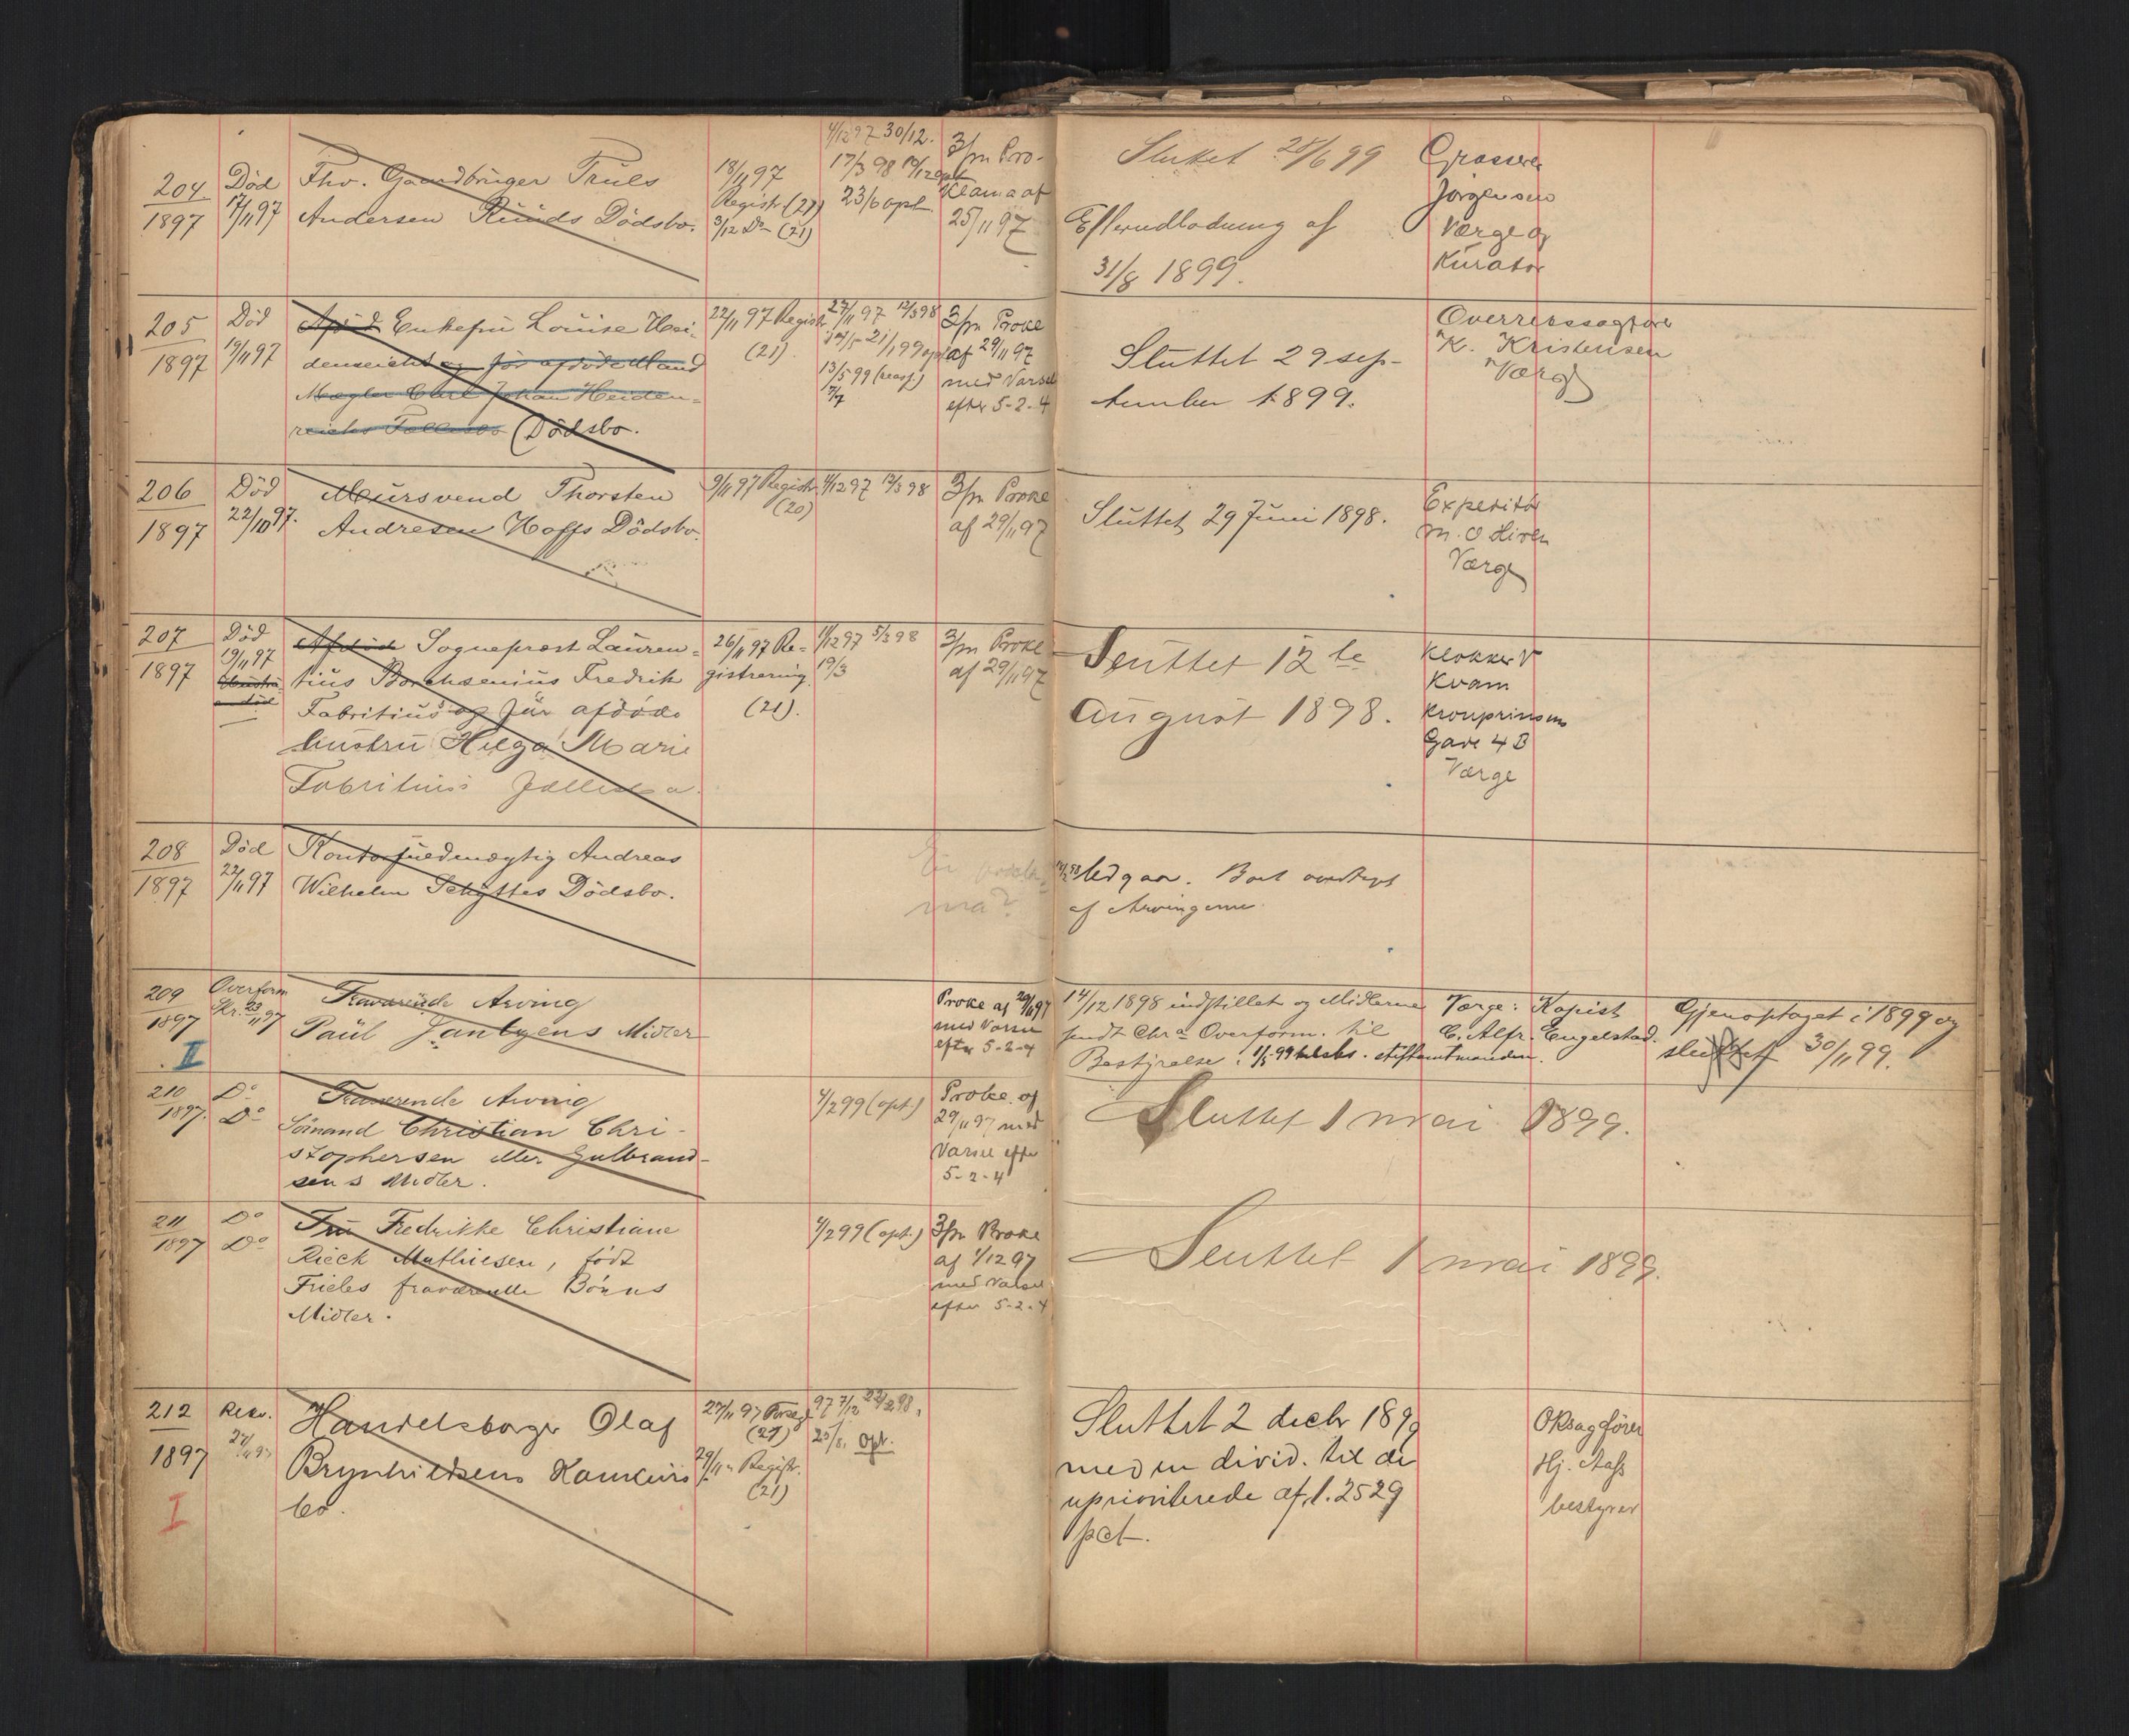 204
1897
Död
17/11 97
Fhv. Gaardbruger Truls
Andersen Ruuds Dödsbo.
18/11 97
Registr. (21)
3/12 Do (21)
4/12 97 30/12.
17/3 98
23/6 opt
3/m Pro-
klama af
25/11 97
Sluttet 28/6 99
Efterudlodning af
31/8 1899.
Grosserer
Jörgensen
Værge og
Kurator
205
1897
Död
19/11 97
Afdöd Enkefru Louise Hei-
denreichs og för afdöde Mand
Mægler Carl Johan Heiden=
reichs Fællesbo (Dödsbo.
22/11 97 Registr.
(21).
27/11 97 12/3 98
21/1 99 opt
13/5 99
3/m Prokl
af 29/11 97
med Varsel
efter 5-2-4
Sluttet 29 sep-
tember 1899.
Overretssagförer
K. Kristensen
Værge
206
1897
Död
22/10 97.
Mursvend Thorsten
Andresen Hoffs Dödsbo.
9/11 97 Registr.
(20)
4/12 97 12/3 98
3/m Prokl
af 29/11 97
Sluttet 29 Juni 1898.
Expeditör
Værge
207
1897
Död
19/11 97
Afdöde Sogneprest Lauren=
tius Borchsenius Fredrik
Fabritius og för afdöde
hustru Helga Marie
Fabritius Fællesbo.
26/11 97 Re=
gistrering
(21).
4/12 97 5/3 98
19/3
3/m Prokl
af 29/11 97
Sluttet 12te
August 1898.
Klokker V
Kvam
Kronprinsens
Gade 4 B
Værge
208
1897
Död
22/11 97
Kontorfuldmægtig Andreas
Wilhelm Schyttes Dödsbo.
Udgaar. Boet overtaget
af Arvingerne
209
1897
II
Overform
Kr. 23/11 97
Fraværende Arving
Paul Jantzens Midler
Prokl af 29/11 97
med Varsel
efter 5-2-4
14/12 1898 indstillet og Midlerne
sendt Chra Overform. til
Bestyrelse. Stiftamtmanden.
Værge: Kopist
C. Alfr. Engelstad.
Gjenoptaget i 1899 og
sluttet 30/11 99.
210
1897.
Do
Do
Fraværende Arving
Sömand Christian Chri-
stophersen eller Gulbrand-
sens Midler.
4/2 99 (opt.)
Prokl. af
29/11 97 med
Varsel efter
5-2-4
Sluttet 1 mai 1899.
211
1897
Do
Do
Fru Fredrikke Christiane
Rieck Mathiesen, född
Frieles fraværende Börns
Midler.
4/2 99 (opt.)
3/m Prokl
af 1/12 97
med Varsel
efter 5-2-4
Sluttet 1 mai 1899.
212
1897
I
Rekv.
Handelsborger Olaf
Brynhildsens Konkurs
bo.
27/11 97
(21)
29/11 Registr.
(21)
22/2 98.
opt.
Sluttet 2 decbr 1899
med en divid. til de
uprioriterede af 1.2529
pct.
ORsagförer
Hj. Aass
bestyrer